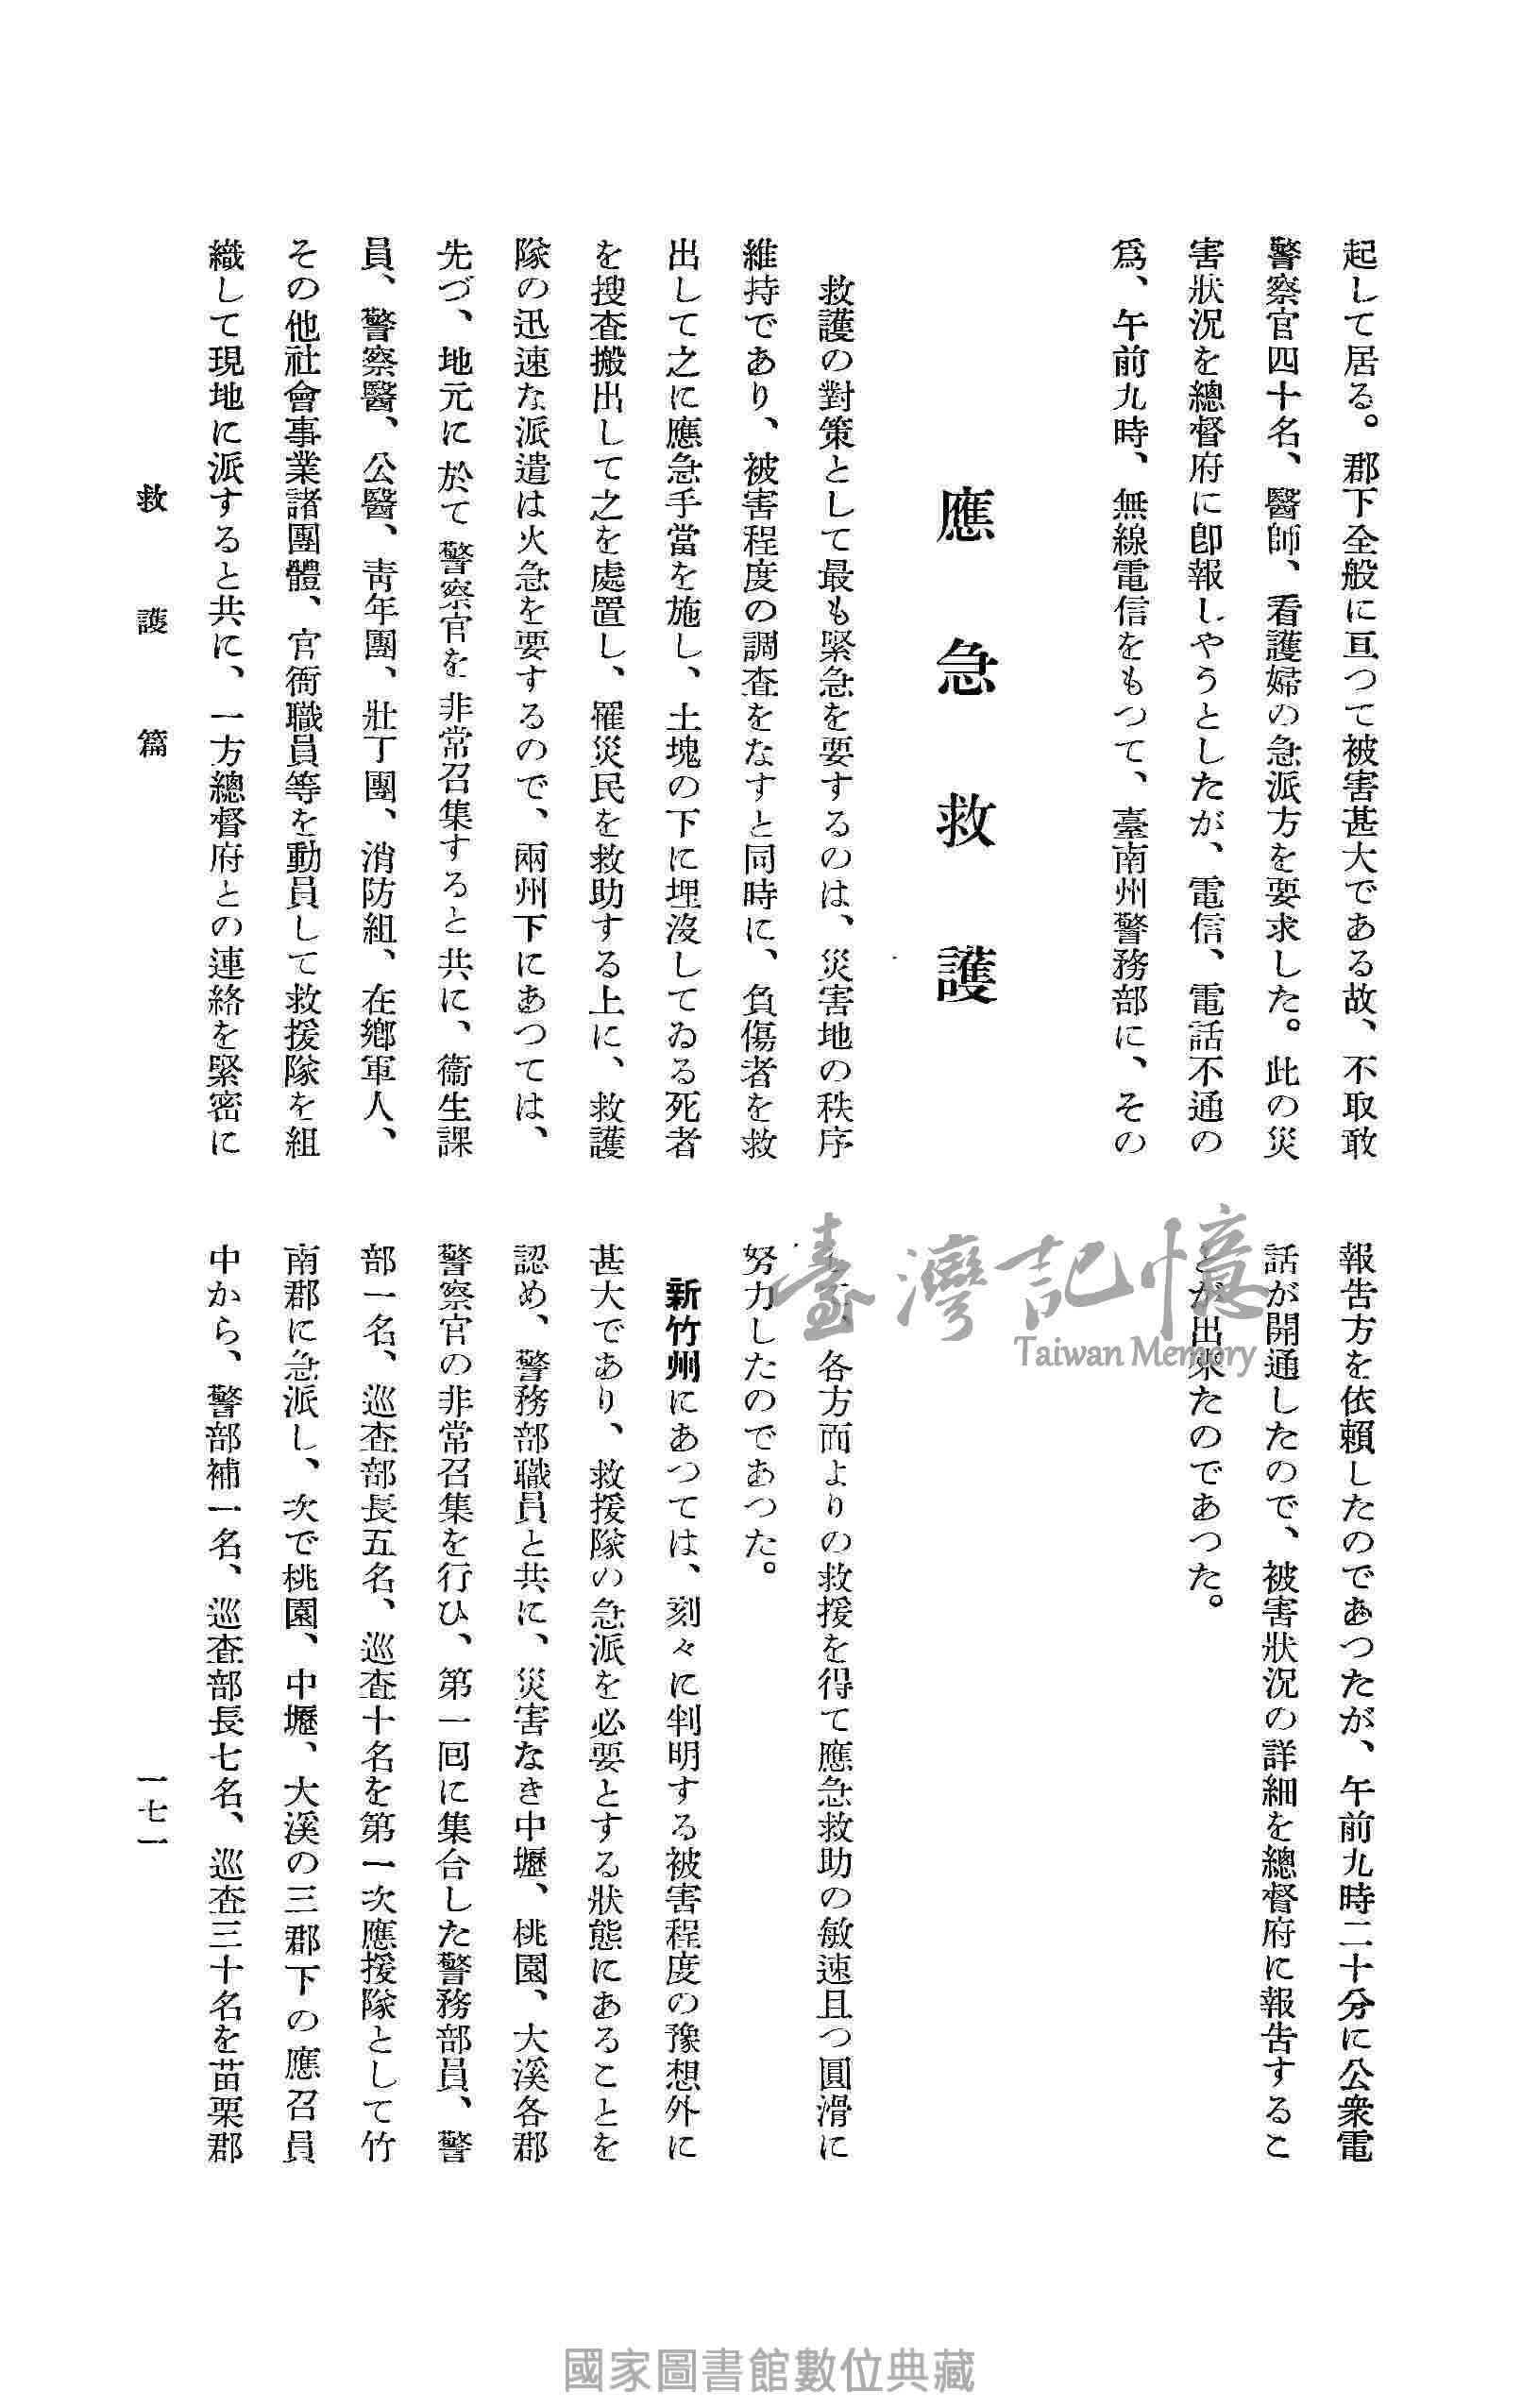 起して居る。郡下全般に亘つて被害甚大である故、不取敢
警察官四十名、醫師、看護婦の急派方を要求した。此の災
害狀況を總督府に卽報しやうとしたが、電信、電話不通の
爲、午前九時、無線電信をもつて、臺南州警務部に、その
報告方を依賴したのであつたが、午前九時二十分に公衆電
話が開通したので、被害狀況の詳細を總督府に報告するこ
とが出來たのであつた。
應急救護
救護の對策として最も緊急を要するのは、災害地の秩序
維持であり、被害程度の調査をなすと同時に、負傷者を救
出して之に應急手當を施し、土塊の下に埋沒してゐる死者
を搜査搬出して之を處置し、罹災民を救助する上に、救護
隊の迅速な派遣は火急を要するので、兩州下にあつては、
先づ、地元に於て警察官を非常召集すると共に、衞生課
員、警察醫、公醫、靑年團、壯丁團、消防組、在鄕軍人、
その他社會事業諸團體、官衙職員等を動員して救援隊を組
織して現地に派すると共に、一方總督府との連絡を緊密に
各方面よりの救援を得て應急救助の敏速且つ圓滑に
努力したのであつた。
新竹州にあつては、刻々に判明する被害程度の豫想外に
甚大であり、救援隊の急派を必要とする狀態にあることを
認め、警務部職員と共に、災害なき中壢、桃園、大溪各郡
警察官の非常召集を行ひ、第一回に集合した警務部員、警
部一名、巡査部長五名、巡査十名を第一次應援隊として竹
南郡に急派し、次で桃園、中壢、大溪の三郡下の應召員
中から、警部補一名、巡査部長七名、巡査三十名を苗栗郡
救護篇
一七一
臺灣記憶
Taiwan Memory
國家圖書館數位典藏